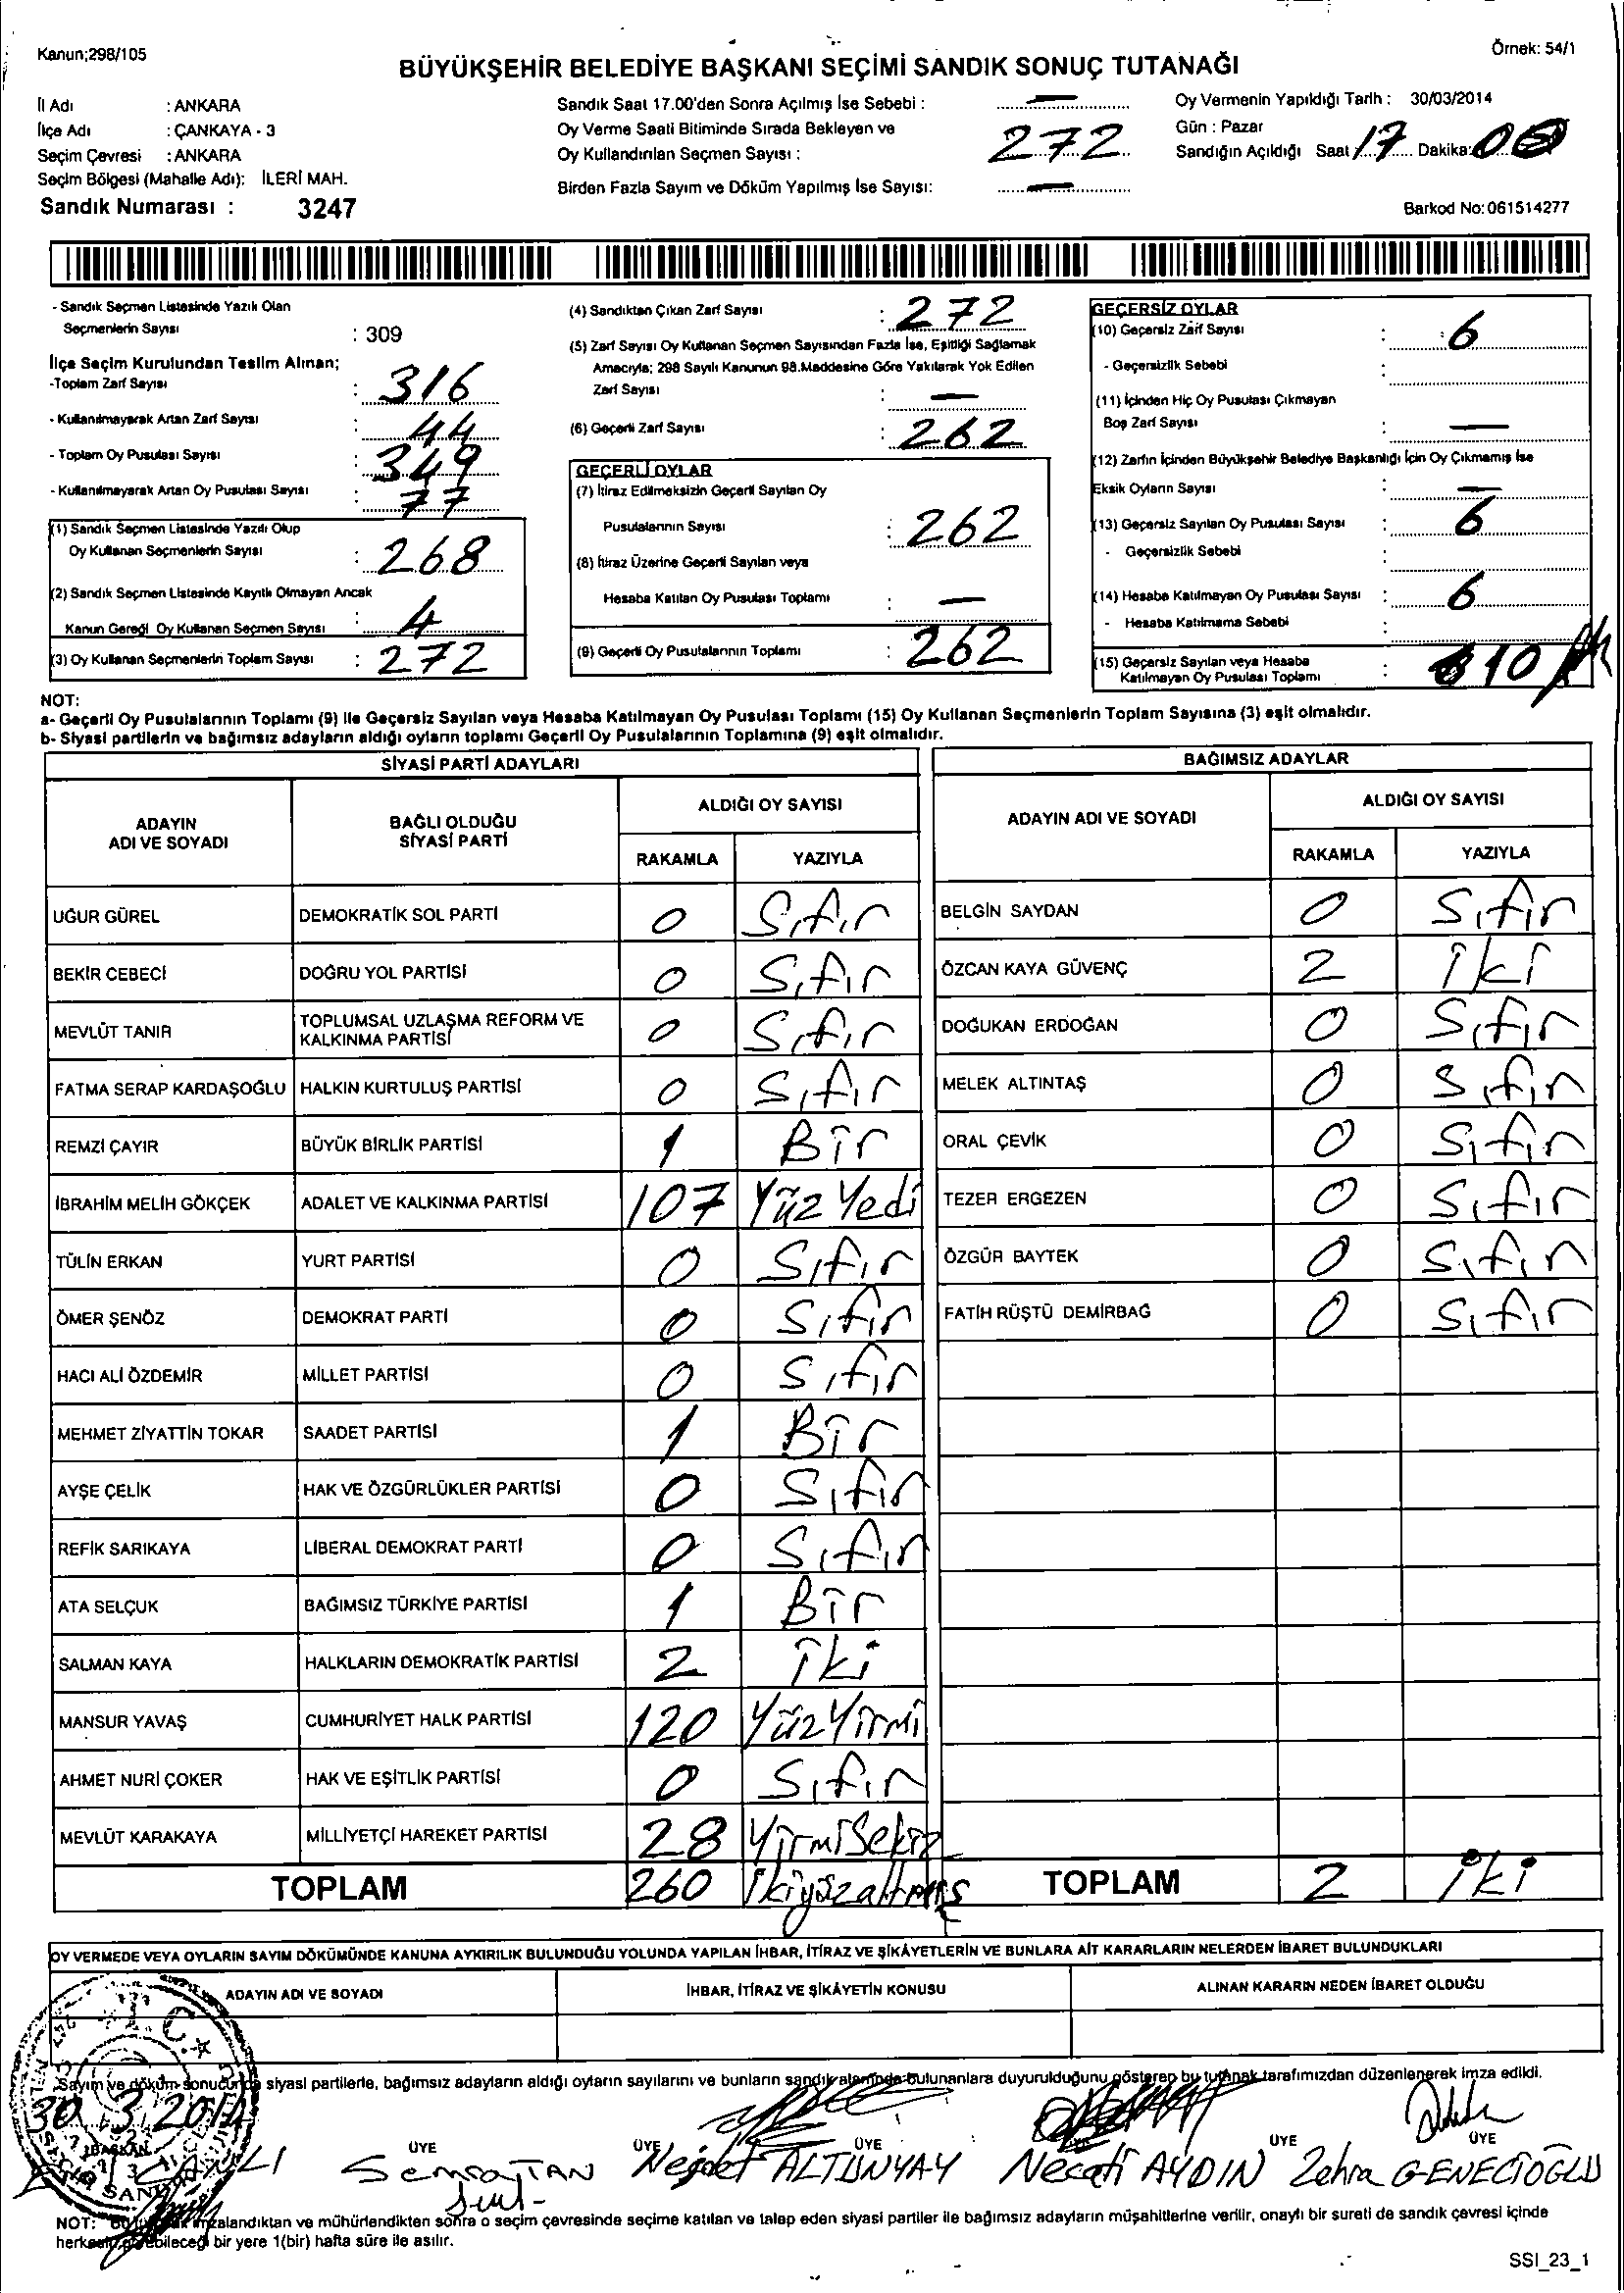 Kanun;298/105
Örnek: 54/1
BÜYÜKŞEHİR BELEDİYE BAŞKANI SEÇİMİ SANDIK SONUÇ TUTANAĞI
İl Adı : ANKARA
İlçe Adı : ÇANKAYA - 3
Seçim Çevresi : ANKARA
Seçim Bölgesi (Mahalle Adı): İLERİ MAH.
Sandık Numarası : 3247
Sandık Saat 17.00'den Sonra Açılmış İse Sebebi : —
Oy Verme Saati Bitiminde Sırada Bekleyen ve
Oy Kullandırılan Seçmen Sayısı : 272
Birden Fazla Sayım ve Döküm Yapılmış İse Sayısı: —
Oy Vermenin Yapıldığı Tarih : 30/03/2014
Gün : Pazar
Sandığın Açıldığı Saat 17 Dakika: 00
Barkod No: 061514277
- Sandık Seçmen Listesinde Yazılı Olan
Seçmenlerin Sayısı : 309
İlçe Seçim Kurulundan Teslim Alınan;
-Toplam Zarf Sayısı : 316
- Kullanılmayarak Artan Zarf Sayısı : 44
- Toplam Oy Pusulası Sayısı : 349
- Kullanılmayarak Artan Oy Pusulası Sayısı : 77
(1) Sandık Seçmen Listesinde Yazılı Olup
Oy Kullanan Seçmenlerin Sayısı : 268
(2) Sandık Seçmen Listesinde Kayıtlı Olmayan Ancak
Kanun Gereği Oy Kullanan Seçmen Sayısı : 4
(3) Oy Kullanan Seçmenlerin Toplam Sayısı : 272
(4) Sandıktan Çıkan Zarf Sayısı : 272
(5) Zarf Sayısı Oy Kullanan Seçmen Sayısından Fazla İse, Eşitliği Sağlamak
Amacıyla; 298 Sayılı Kanunun 98.Maddesine Göre Yakılarak Yok Edilen
Zarf Sayısı : —
(6) Geçerli Zarf Sayısı : 262
GEÇERLİ OYLAR
(7) İtiraz Edilmeksizin Geçerli Sayılan Oy
Pusulalarının Sayısı : 262
(8) İtiraz Üzerine Geçerli Sayılan veya
Hesaba Katılan Oy Pusulası Toplamı : —
(9) Geçerli Oy Pusulalarının Toplamı : 262
GEÇERSİZ OYLAR
(10) Geçersiz Zarf Sayısı : 6
- Geçersizlik Sebebi :
(11) İçinden Hiç Oy Pusulası Çıkmayan
Boş Zarf Sayısı : —
(12) Zarfın İçinden Büyükşehir Belediye Başkanlığı İçin Oy Çıkmamış İse
Eksik Oyların Sayısı : —
(13) Geçersiz Sayılan Oy Pusulası Sayısı : 6
- Geçersizlik Sebebi :
(14) Hesaba Katılmayan Oy Pusulası Sayısı : 6
- Hesaba Katılmama Sebebi :
(15) Geçersiz Sayılan veya Hesaba
Katılmayan Oy Pusulası Toplamı : 10
NOT:
a- Geçerli Oy Pusulalarının Toplamı (9) ile Geçersiz Sayılan veya Hesaba Katılmayan Oy Pusulası Toplamı (15) Oy Kullanan Seçmenlerin Toplam Sayısına (3) eşit olmalıdır.
b- Siyasi partilerin ve bağımsız adayların aldığı oyların toplamı Geçerli Oy Pusulalarının Toplamına (9) eşit olmalıdır.
SİYASİ PARTİ ADAYLARI
ADAYIN ADI VE SOYADI BAĞLI OLDUĞU SİYASİ PARTİ ALDIĞI OY SAYISI
RAKAMLA YAZIYLA
UĞUR GÜREL DEMOKRATİK SOL PARTİ 0 Sıfır
BEKİR CEBECİ DOĞRU YOL PARTİSİ 0 Sıfır
MEVLÜT TANIR TOPLUMSAL UZLAŞMA REFORM VE KALKINMA PARTİSİ 0 Sıfır
FATMA SERAP KARDAŞOĞLU HALKIN KURTULUŞ PARTİSİ 0 Sıfır
REMZİ ÇAYIR BÜYÜK BİRLİK PARTİSİ 1 Bir
İBRAHİM MELİH GÖKÇEK ADALET VE KALKINMA PARTİSİ 107 Yüz Yedi
TÜLİN ERKAN YURT PARTİSİ 0 Sıfır
ÖMER ŞENÖZ DEMOKRAT PARTİ 0 Sıfır
HACI ALİ ÖZDEMİR MİLLET PARTİSİ 0 Sıfır
MEHMET ZİYATTİN TOKAR SAADET PARTİSİ 1 Bir
AYŞE ÇELİK HAK VE ÖZGÜRLÜKLER PARTİSİ 0 Sıfır
REFİK SARIKAYA LİBERAL DEMOKRAT PARTİ 0 Sıfır
ATA SELÇUK BAĞIMSIZ TÜRKİYE PARTİSİ 1 Bir
SALMAN KAYA HALKLARIN DEMOKRATİK PARTİSİ 2 iki
MANSUR YAVAŞ CUMHURİYET HALK PARTİSİ 120 Yüz Yirmi
AHMET NURİ ÇOKER HAK VE EŞİTLİK PARTİSİ 0 Sıfır
MEVLÜT KARAKAYA MİLLİYETÇİ HAREKET PARTİSİ 28 Yirmi Sekiz
TOPLAM 260 ikiyüzaltmış
BAĞIMSIZ ADAYLAR
ADAYIN ADI VE SOYADI ALDIĞI OY SAYISI
RAKAMLA YAZIYLA
BELGİN SAYDAN 0 Sıfır
ÖZCAN KAYA GÜVENÇ 2 iki
DOĞUKAN ERDOĞAN 0 Sıfır
MELEK ALTINTAŞ 0 Sıfır
ORAL ÇEVİK 0 Sıfır
TEZER ERGEZEN 0 Sıfır
ÖZGÜR BAYTEK 0 Sıfır
FATİH RÜŞTÜ DEMİRBAĞ 0 Sıfır
TOPLAM 2 iki
OY VERMEDE VEYA OYLARIN SAYIM DÖKÜMÜNDE KANUNA AYKIRILIK BULUNDUĞU YOLUNDA YAPILAN İHBAR, İTİRAZ VE ŞİKÂYETLERİN VE BUNLARA AİT KARARLARIN NELERDEN İBARET BULUNDUKLARI
ADAYIN ADI VE SOYADI İHBAR, İTİRAZ VE ŞİKÂYETİN KONUSU ALINAN KARARIN NEDEN İBARET OLDUĞU
Sayım ve döküm sonucunda siyasi partilerle, bağımsız adayların aldığı oyların sayılarını ve bunların sandık alanında bulunanlara duyurulduğunu gösteren bu tutanak tarafımızdan düzenlenerek imza edildi.
30.3.2014
BAŞKAN ÜYE ÜYE ÜYE ÜYE ÜYE
Semra TAN Nejdet ALTUNYAY Necati AYDIN Zehra GENECİOĞLU
NOT: imzalandıktan ve mühürlendikten sonra o seçim çevresinde seçime katılan ve talep eden siyasi partiler ile bağımsız adayların müşahitlerine verilir, onaylı bir sureti de sandık çevresi içinde
bir yere 1(bir) hafta süre ile asılır.
SSI_23_1